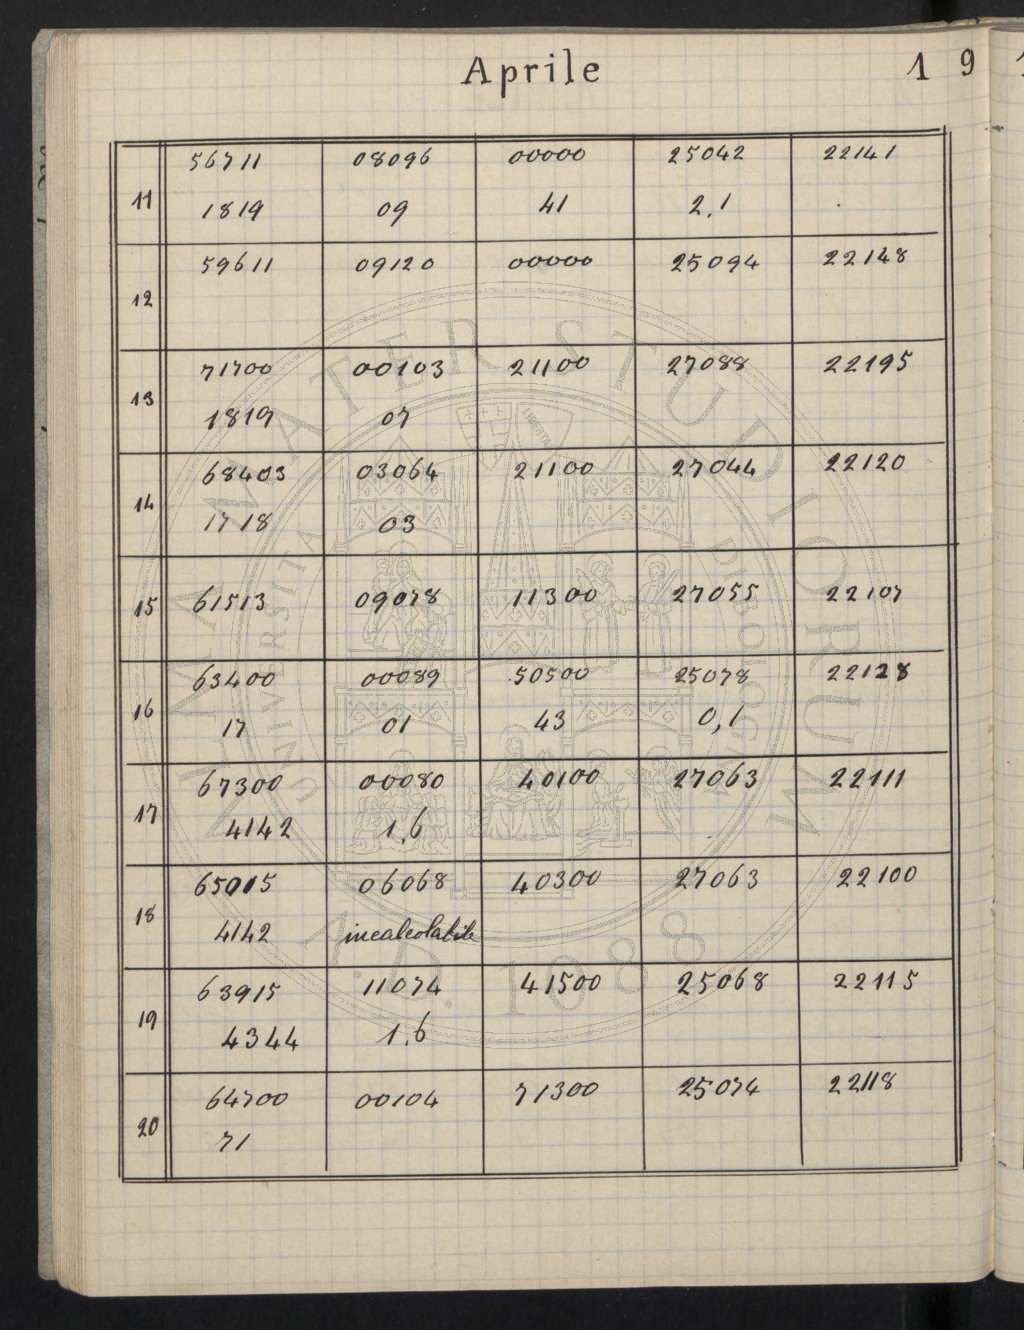 Aprile 1 9
11 56711 08096 00000 25042 22141
1819 09 41 2,1
12 59611 09120 00000 25094 22148
13 71700 00103 21100 27088 22195
1819 07
14 68403 03064 21100 27044 22120
1718 03
15 61513 09078 11300 27055 22107
16 63400 00089 50500 25078 22128
17 01 43 0,1
17 67300 00080 40100 27063 22111
4142 1,6
18 65015 06068 40300 27063 22100
4142 incalcolabile
19 63915 11074 41500 25068 22115
4344 1,6
20 64700 00104 71300 25074 22118
71
ALMA MATER STUDIORUM
UNIVERSITA DI BOLOGNA
A.D. 1088
LIBERTAS